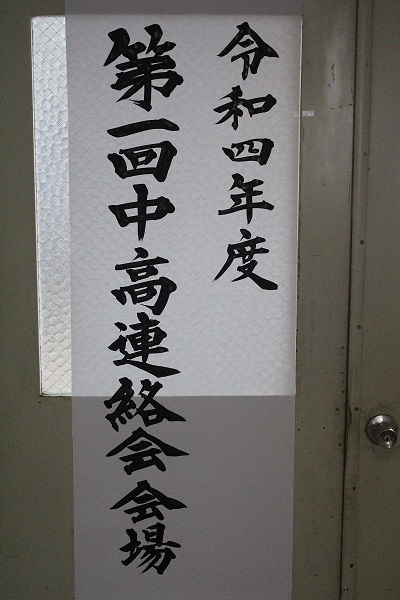 令和四年度
第一回中高連絡会会場